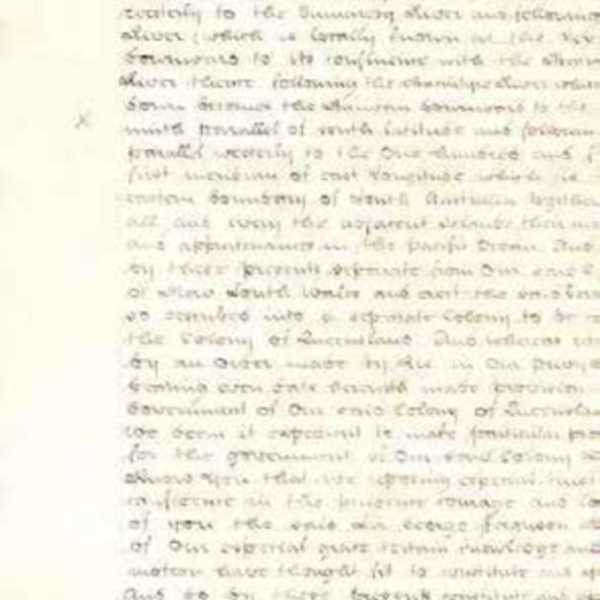 westerly to the Dumaresq River and following
River (which is locally known as the
downwards to its confluence with the
River thence following the Macintyre River which
down becomes the Barwan downwards to the
ninth parallel of south latitude and following
parallel westerly to the One hundred and f
first meridian of east longitude which is
eastern boundary of South Australia together
all and every the adjacent Islands their me
and appurtenances in the Pacific Ocean And
by these presents separate from Our said
of New South Wales and erect the said
so described into a separate Colony to be
the Colony of Queensland And whereas
by an Order made by Us in Our Privy
bearing even date herewith made provision
Government of Our said Colony of Queensland
We deem it expedient to make particular pro
for the government of Our said Colony
Know You that we reposing especial trust
confidence in the prudence courage and lo
of you the said Sir George Ferguson
of Our especial grace certain knowledge and
motion have thought fit to constitute and
And do by these presents constitute and